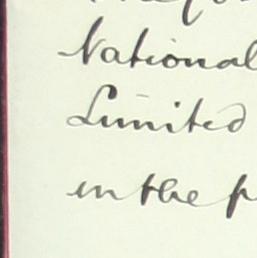 National
Limited
in the